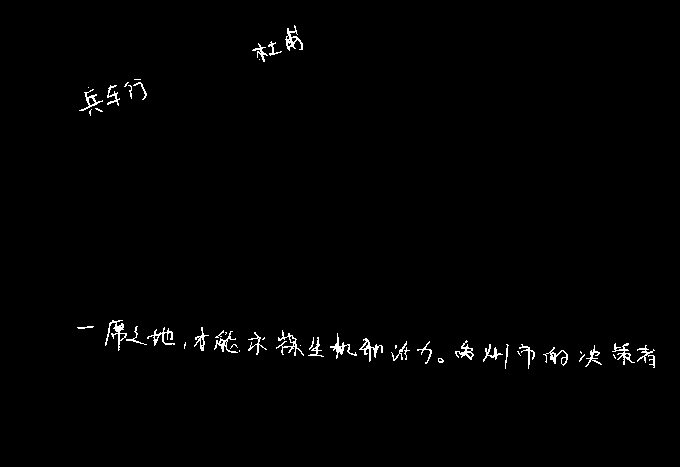 杜甫
兵车行
一席之地,才能永葆生机和活力。兖州市的决策者